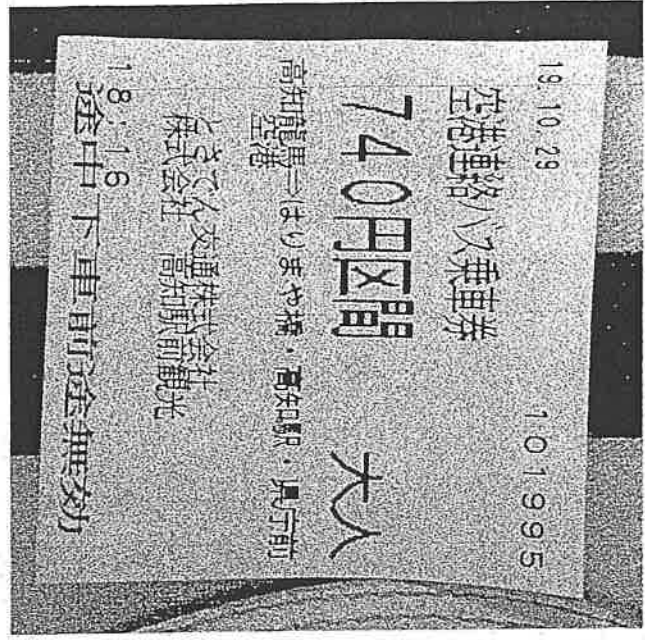 19.10.29 101995
空港連絡バス乗車券
740円区間 大人
高知龍馬空港→はりまや橋・高知駅・県庁前
とさでん交通株式会社
株式会社 高知駅前観光
18:16
途中下車前途無効